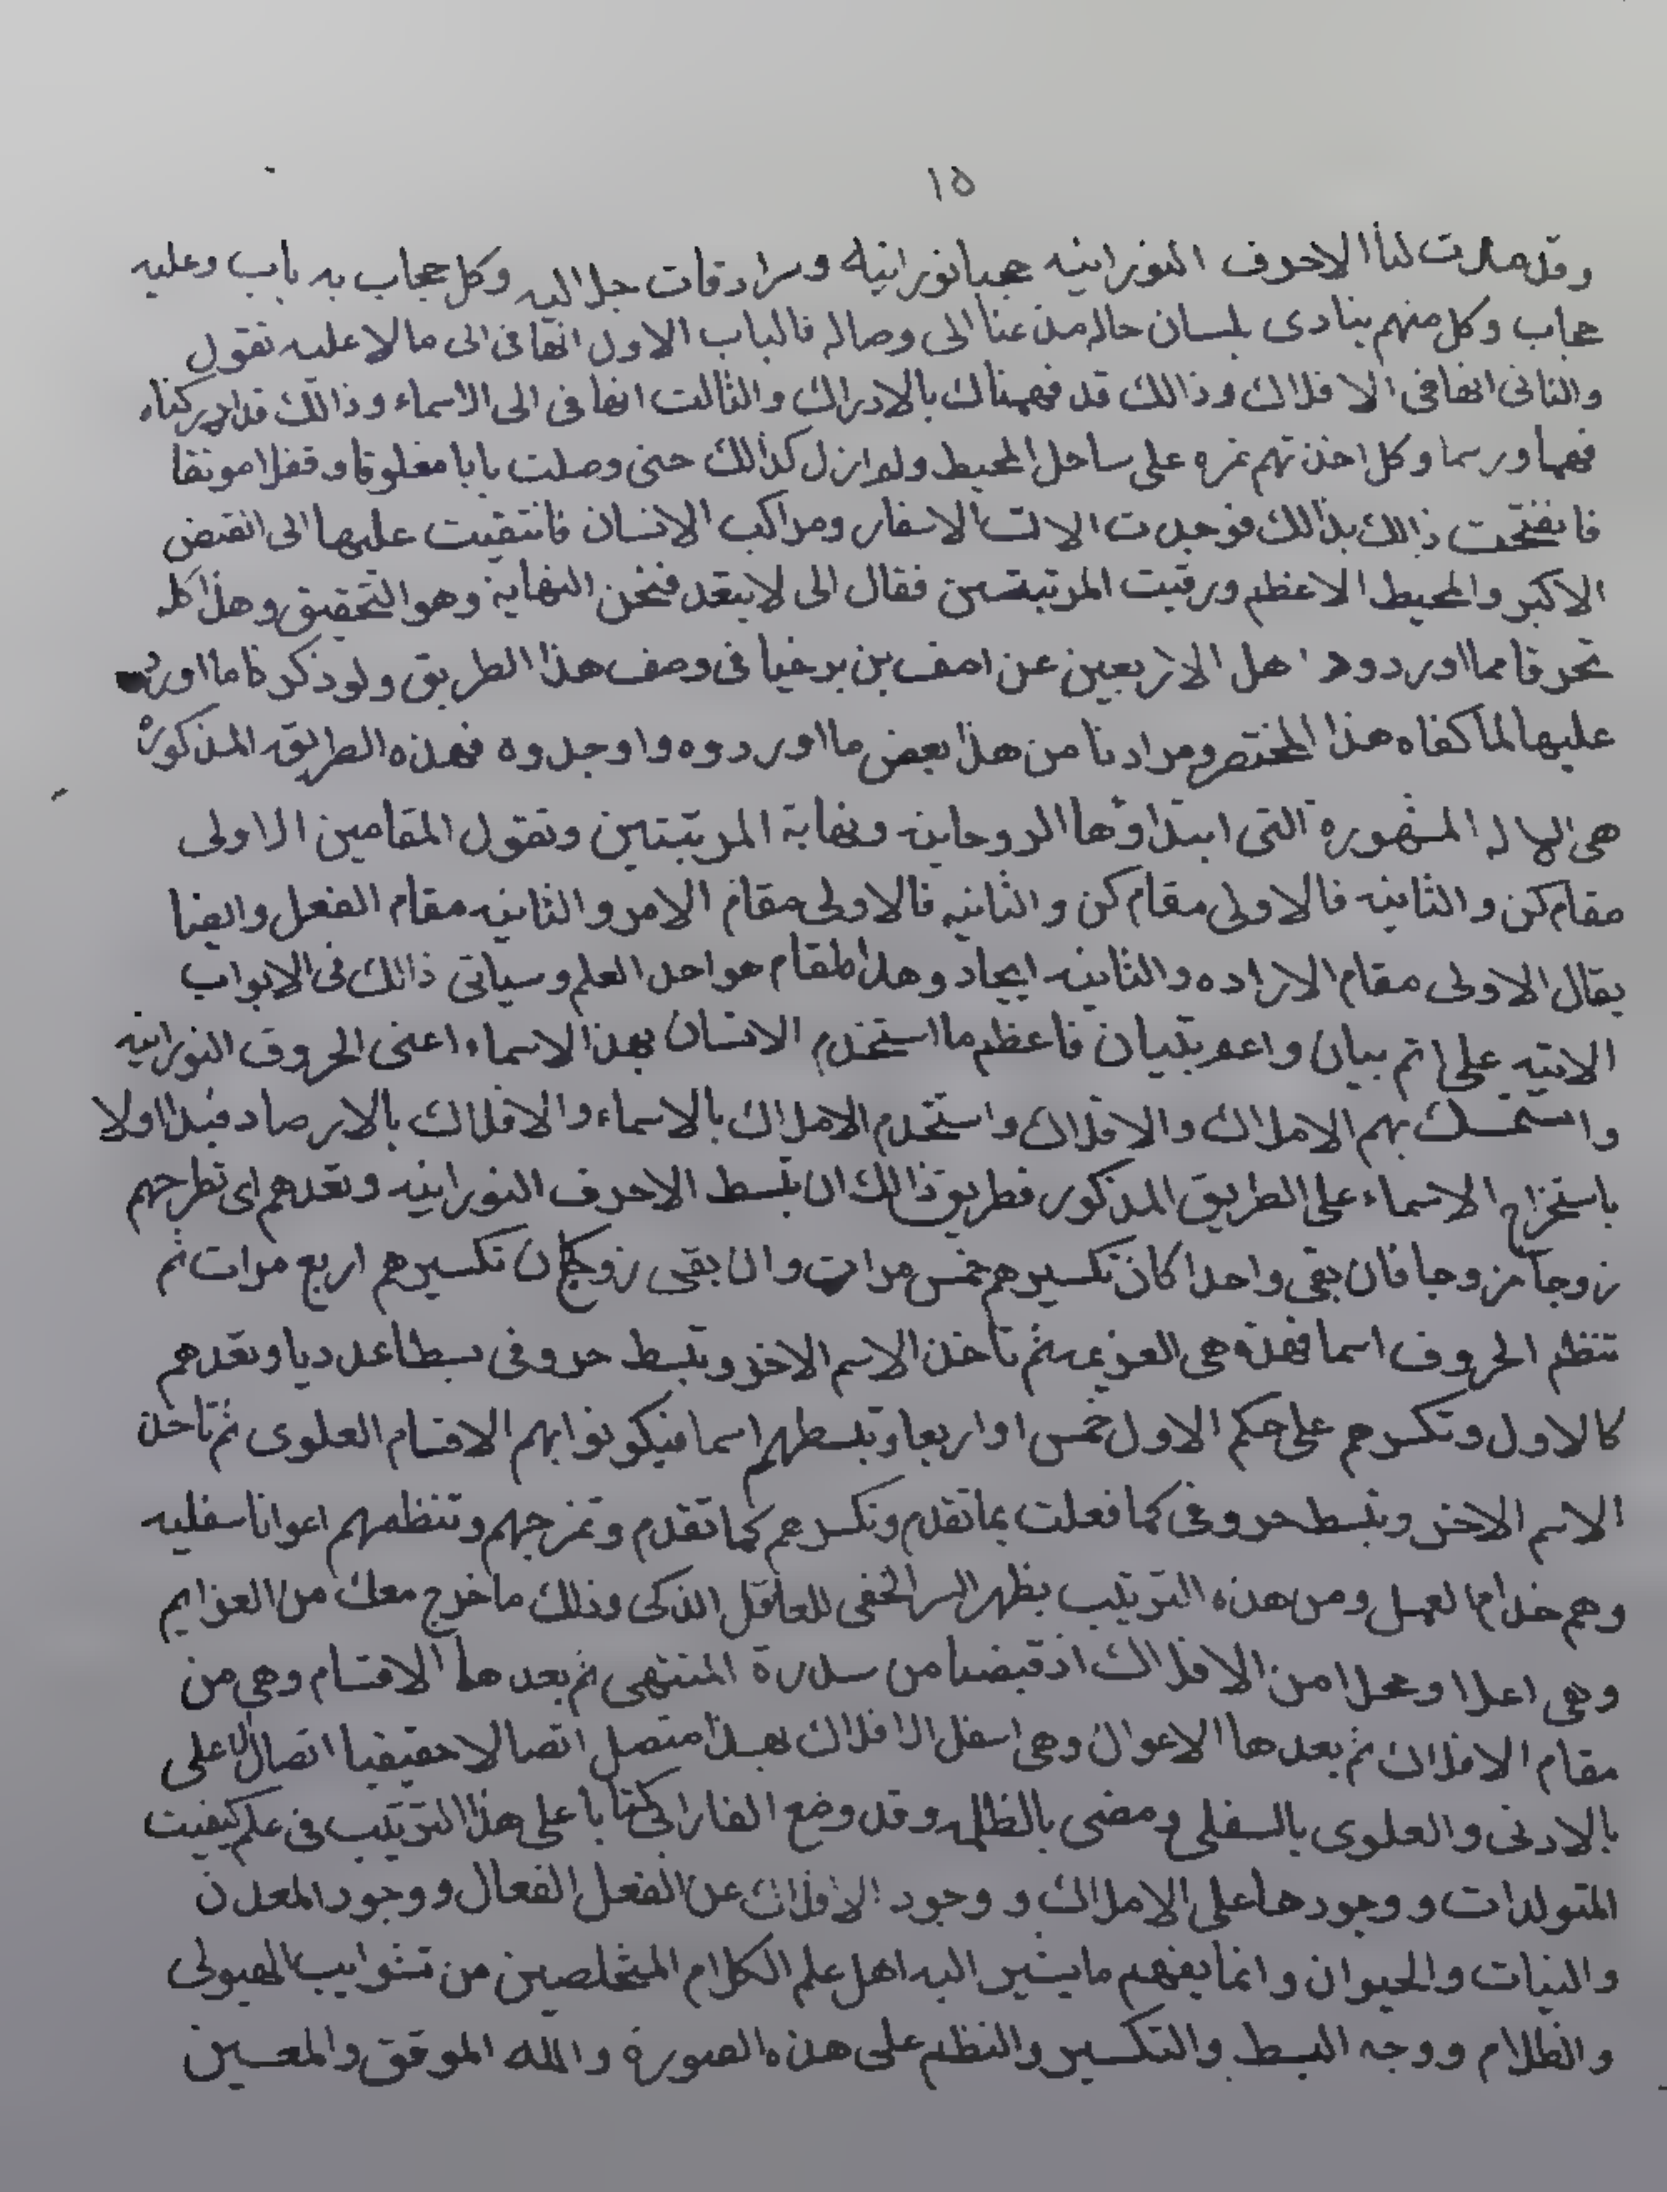 ١٥
وقد صارت لنا الاحرف النورانيه حجبا نورانيه وسرادقات جلاليه وكل حجاب به باب وعليه
حجاب وكل منهم ينادى بلسان حاله من عنا الى وصاله فالباب الاول اتقانى الى ما لا عليه نقول
والثانى اتقانى الافلاك وذالك قد فهمناك بالادراك والثالث اتقانى الى الاسماء وذالك قد ادركناه
فهما ورسما وكل اخذتهم غره على ساحل المحيط ولم ازل كذالك حتى وصلت بابا مغلوقا وقفلا موثقا
فانفتحت ذالك بذالك فوجدت الات الاسفار ومراكب الانسان فانتقيت عليها الى القبض
الاكبر والمحيط الاعظم ورقيت المرتبتين فقال الى لا يتعد فنحن النهاية وهو التحقيق وهذا كله
تحرقا مما اوردوه اهل الاربعين عن اصف بن برخيا فى وصف هذا الطريق ولو ذكرنا ما اورد
عليها لما كفاه هذا المختصر ومرادنا من هذا بعض ما اوردوه واوجدوه فهذه الطريقه المذكوره
هى المشهورة التى ابتداؤها الروحانيه ونهاية المرتبتين ونقول المقامين الاولى
مقام كن والثانيه فالاولى مقام كن والثانيه فالاولى مقام الامر والثانيه مقام الفعل وايضا
يقال الاولى مقام الاراده والثانيه ايجاد وهذا المقام هو احد العلم وسياتى ذالك فى الابواب
الاتيه على اتم بيان واعم تبيان فاعظم ما استخدم الانسان بهذا الاسماء اعنى الحروف النورانيه
واستمسك بهم الاملاك والافلاك واستخدم الاملاك بالاسماء والافلاك بالارصاد فبدا اولا
باستخراج الاسماء على الطريق المذكور فطريق ذالك ان تبسط الاحرف النورانيه وتعدهم اى تطرحهم
زوجا زوجا فان بقى واحدا كان تكسيرهم خمس مرات وان بقى زوج كان تكسيرهم اربع مرات ثم
تنظم الحروف اسما فهذه هى العزيمه ثم تاخذ الاسم الاخر وتبسط حروفى بسطا عدديا وتعدهم
كالاول وتكسرهم على حكم الاول خمس او اربعا وتبسطهم اسما فيكونوا بهم الاقسام العلوى ثم تاخذ
الاسم الاخر وتبسط حروفى كما فعلت بما تقدم وتكسرهم كما تقدم وتمزجهم وتنظمهم اعوانا سفليه
وهم خدام العمل ومن هذه الترتيب يظهر السر الخفى للعاقل الذكى وذلك ما خرج معك من العزايم
وهى اعلا ومحلا من الافلاك اذ قبضنا من سدرة المنتهى ثم بعدها الاقسام وهى من
مقام الافلاك ثم بعدها الاعوان وهى اسفل الافلاك بهذا متصل اتصالا حقيقيا اتصال الاعلى
بالادنى والعلوى بالسفلى ومضى بالظلمه وقد وضع الفارابى كتابا على هذا الترتيب فى علم كيفيت
المتولدات ووجودها على الاملاك ووجود الافلاك عن الفعل الفعال ووجود المعدن
والنبات والحيوان وانما يفهم ما يشير اليه اهل علم الكلام المتخلصين من تشوايب الهيولى
والظلام ووجه البسط والتكسير والنظم على هذه الصورة والله الموفق والمعين